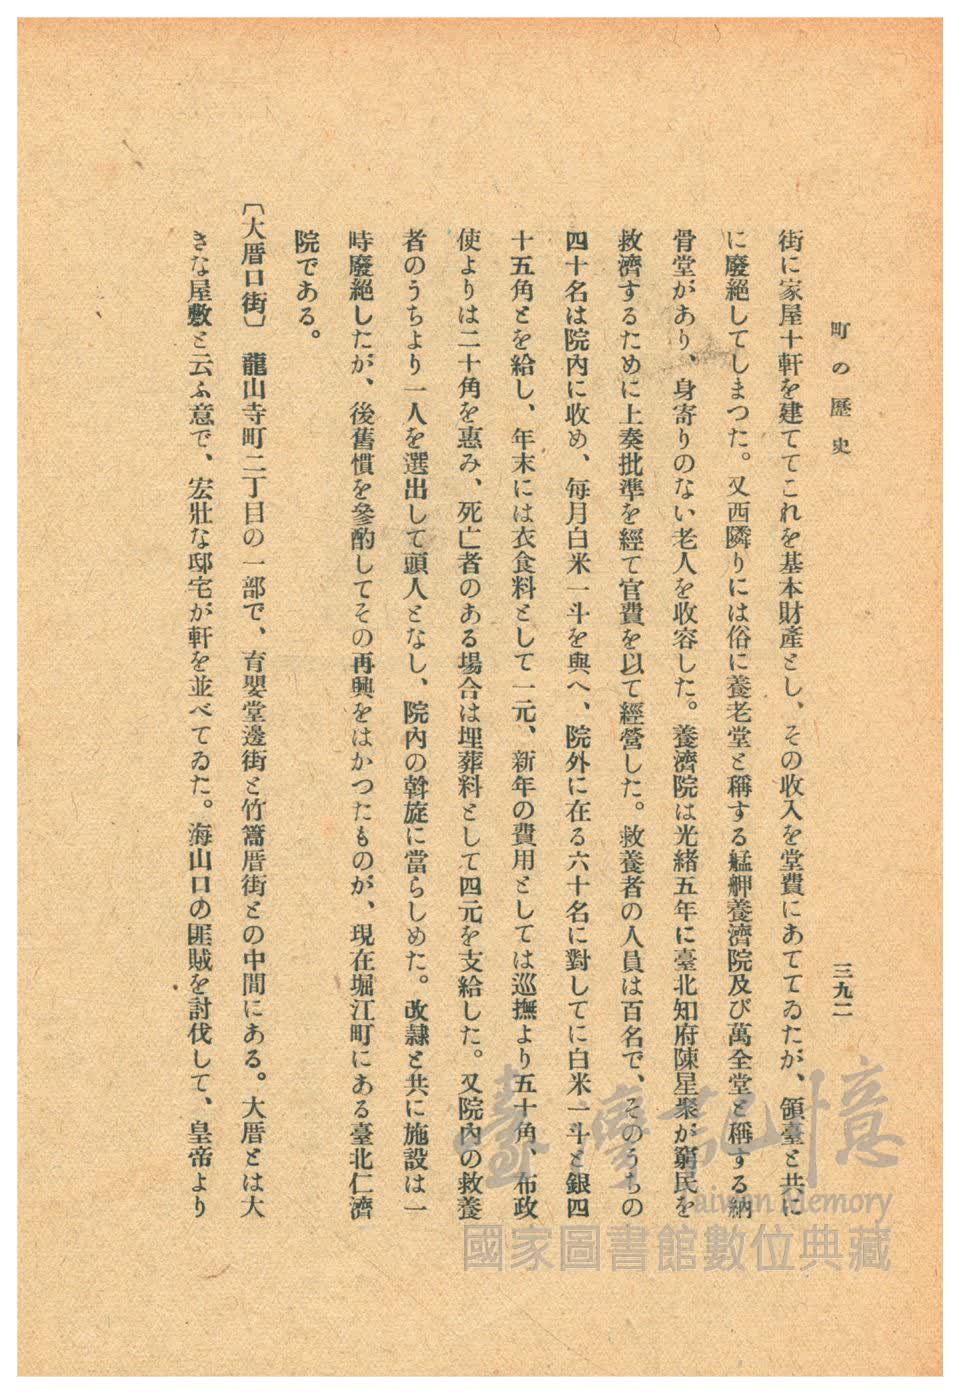 町の歷史
三九二
街に家屋十軒を建ててこれを基本財產とし、その收入を堂費にあててゐたが、領臺と共に
に廢絕してしまつた。又西隣りには俗に養老堂と稱する艋舺養濟院及び萬全堂と稱する納
骨堂があり、身寄りのない老人を收容した。養濟院は光緒五年に臺北知府陳星聚が窮民を
救濟するために上奏批準を經て官費を以て經營した。救養者の人員は百名で、そのうちの
四十名は院內に收め、每月白米一斗を與へ、院外に在る六十名に對してに白米一斗と銀四
十五角とを給し、年末には衣食料として一元、新年の費用としては巡撫より五十角、布政
使よりは二十角を惠み、死亡者のある場合は埋葬料として四元を支給した。又院內の救養
者のうちより一人を選出して頭人となし、院內の斡旋に當らしめた。改隷と共に施設は一
時廢絕したが、後舊慣を參酌してその再興をはかつたものが、現在堀江町にある臺北仁濟
院である。
〔大厝口街〕 龍山寺町二丁目の一部で、育嬰堂邊街と竹篙厝街との中間にある。大厝とは大
きな屋敷と云ふ意で、宏壯な邸宅が軒を並べてゐた。海山口の匪賊を討伐して、皇帝より
臺灣記憶
Taiwan Memory
國家圖書館數位典藏